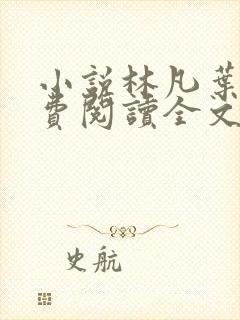 小說林凡葉
費閱讀全文
史航